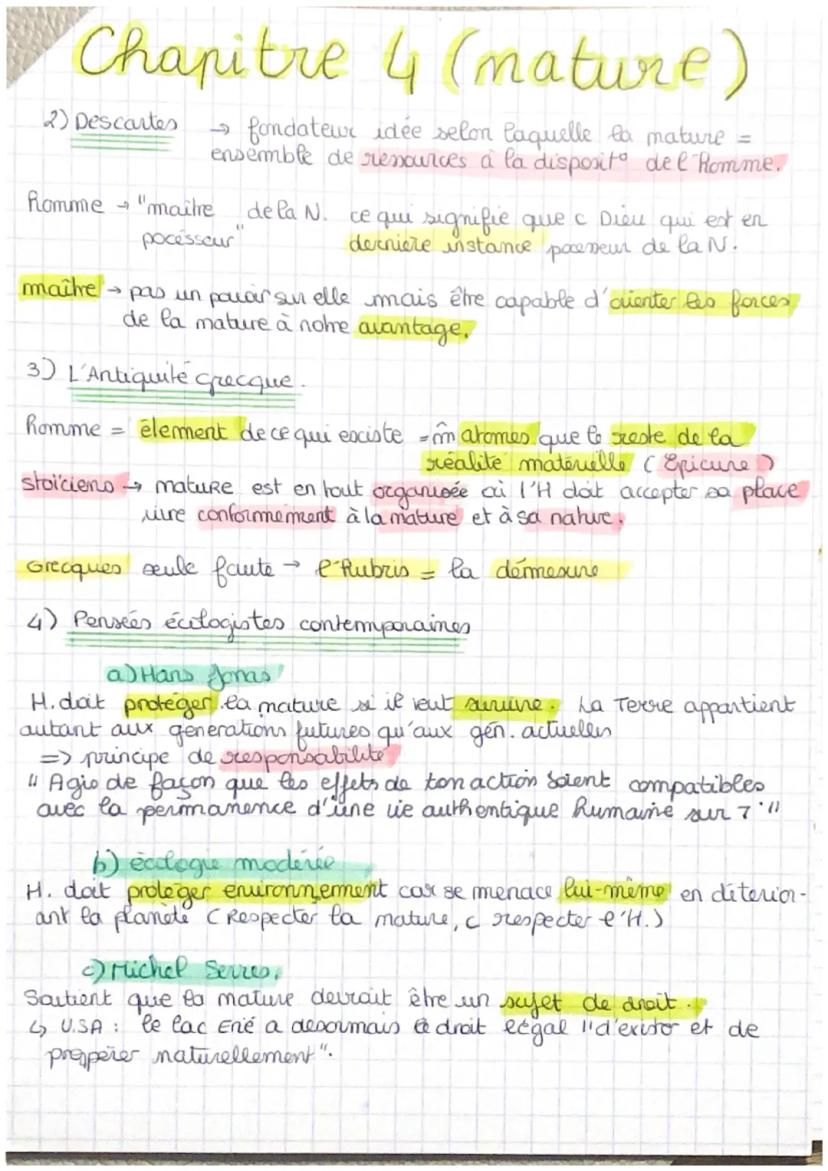 Chapitre 4 (nature)
2) Descartes → fondateur idée selon laquelle la nature =
ensemble de ressources à la disposit° de l'Homme.
homme → "maître de la N. ce qui signifie que c Dieu qui est en
pocésseur" dernière instance posesseur de la N.
maître → pas un pouvoir sur elle mais être capable d'orienter les forces
de la nature à notre avantage.
3) L'Antiquité grecque.
homme = élement de ce qui existe = m̂ atomes que le reste de la
réalité matérielle (Epicure)
stoïciens → nature est en tout organisée où l'H doit accepter sa place
vivre conformément à la nature et à sa nature.
Grecques seule faute → l'hubris = la démesure
4) Pensées écologistes contemporaines
a) Hans Jonas
H. doit protéger la nature si il veut survivre. La Terre appartient
autant aux générations futures qu'aux gén. actuelles
=> principe de responsabilité
"Agis de façon que les effets de ton action soient compatibles
avec la permanence d'une vie authentique humaine sur T."
b) écologie modérée
H. doit protéger environnement car se menace lui-même en détérior-
ant la planète (Respecter la nature, c respecter l'H.)
c) Michel Serres.
Soutient que la nature devrait être un sujet de droit.
↳ U.SA : le lac Erié a désormais le droit légal "d'exister et de
prospérer naturellement".